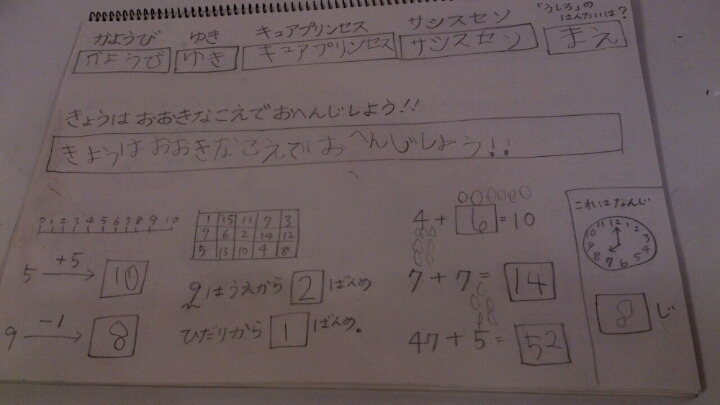 かようび ゆき キュアプリンセス サシスセソ 「うしろ」のはんたいは?
かようび ゆき キュアプリンセス サシスセソ まえ
きょうは おおきなこえで おへんじしよう!!
きょうは おおきなこえで おへんじしよう!!
0 1 2 3 4 5 6 7 8 9 10
5 +5 → 10
9 -1 → 8
1 15 11 7 3
9 6 2 14 12
5 13 10 4 8
9はうえから 2 ばんめ
ひだりから 1 ばんめ。
4 + 6 = 10
7 + 7 = 14
47 + 5 = 52
これはなんじ
12 1 2 3 4 5 6 7 8 9 10 11
8 じ